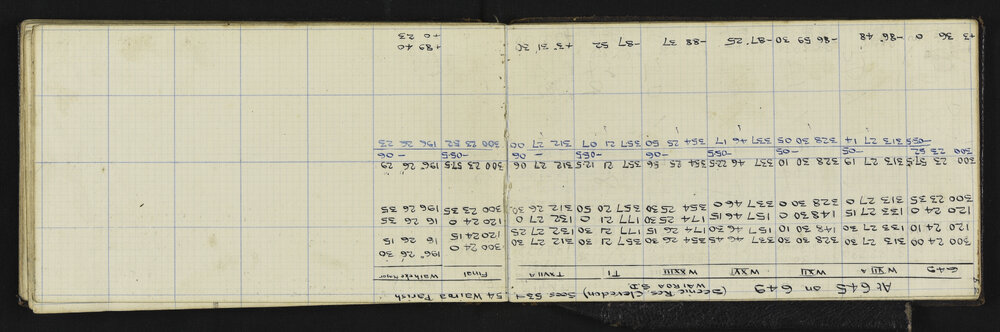 At 645 on 649 (Scenic Res Clevedon) Secs 53-54 Wairoa Parish
WAIROA S.D
649 W XII A W XXI W XVI W XXIII T I T XVII A Final
300 24 00 313 27 30 328 30 30 337 46 45 354 26 30 357 21 30 312 27 30 300 24 0 196° 26 30
120 24 10 133 27 30 148 30 10 157 46 30 174 26 15 177 21 30 132 27 25 120 24 15 16 26 15
120 24 0 133 27 15 148 30 0 157 46 15 174 25 30 177 21 0 132 27 0 120 24 0 16 26 35
300 23 35 313 27 0 328 30 0 337 46 0 354 25 30 357 20 50 312 26 30 300 23 35 196 26 35
300 23 57.5 313 27 19 328 30 10 337 46 22.5 354 25 56 357 21 12.5 312 27 06 300 23 57.5 196 26 29
-05.5 -05 -05 -05.5 -06 -05.5 -06 -05.5 -06
300 23 52 313 27 14 328 30 05 337 46 17 354 25 50 357 21 07 312 27 00 300 23 52 196 26 23
+3 36 0 -86° 48 -86 59 30 -87° 25 -88 37 -87 52 +3° 31 30 +89 40
+0 23